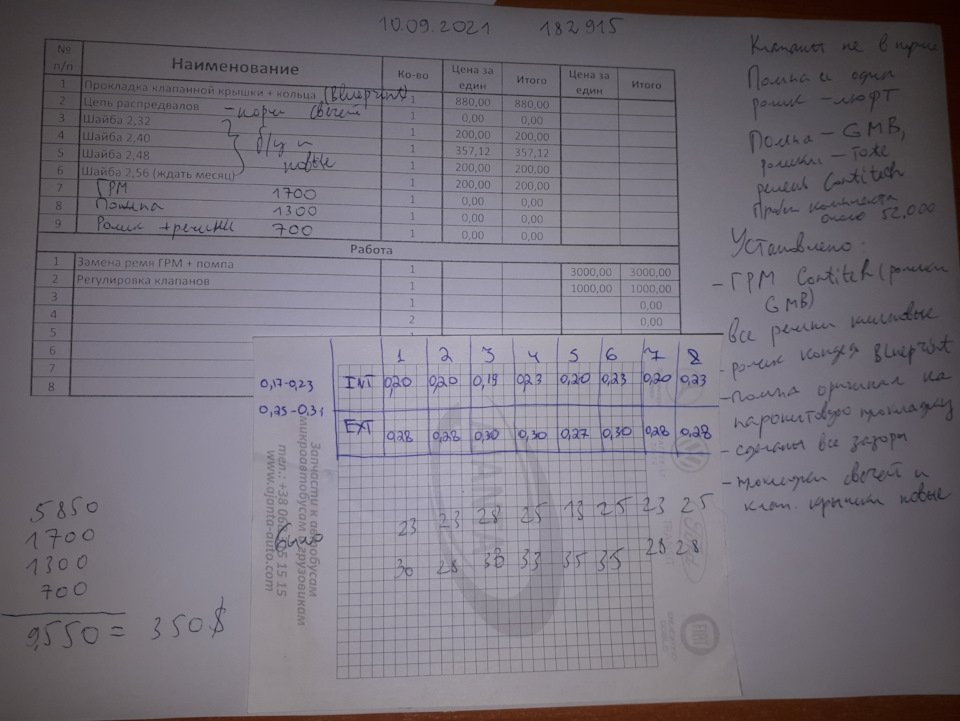 10.09.2021 182915
№ п/п Наименование Кол-во Цена за един Итого Цена за един Итого
1 Прокладка клапанной крышки + кольца (Blueprint) 1 880,00 880,00
2 Цепь распредвалов 1 0,00 0,00
3 Шайба 2,32 1 200,00 200,00
4 Шайба 2,40 1 357,12 357,12
5 Шайба 2,48 1 200,00 200,00
6 Шайба 2,56 (ждать месяц) 1 200,00 200,00
свечей
б/у и
новые
7 ГРМ 1700 1 0,00 0,00
8 Помпа 1300 1 0,00 0,00
9 Ролик + ремни 700 1 0,00 0,00
Работа
1 Замена ремя ГРМ + помпа 1 3000,00 3000,00
2 Регулировка клапанов 1 1000,00 1000,00
3 1 0,00
4 2 0,00
5
6
7
8
Клапаны не в норме
Помпа и один
ролик - люфт
Помпа - GMB,
ролики - тоже
ремень Contitech
Пробег комплекта
около 52,000
Установлено:
- ГРМ Contitech (ролики
GMB)
- все ремни
- ролик кондея Blueprint
- помпа оригинал на
паронитовую прокладку
- сделаны все зазоры
- прокладки свечей и
клап. крышки новые
1 2 3 4 5 6 7 8
0,17-0,23 INT 0,20 0,20 0,19 0,23 0,20 0,23 0,20 0,23
0,25-0,31 EXT 0,28 0,28 0,30 0,30 0,27 0,30 0,28 0,28
было
23 23 28 25 13 25 23 25
30 28 33 35 35 28 28
Запчасти к автобусам
микроавтобусам грузовикам
www.ajanta-auto.com
5850
1700
1300
700
9550 = 350$
FIAT